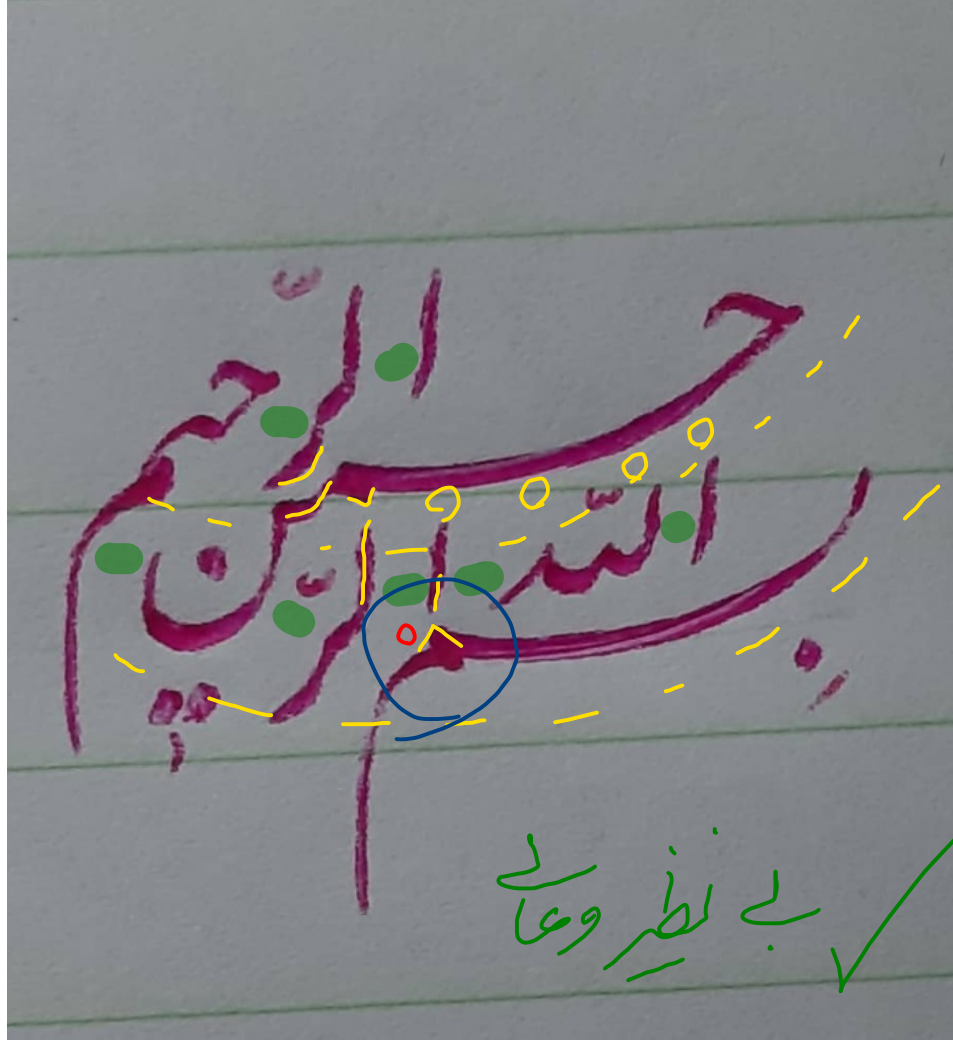 بسم الله الرّحمن الرّحیم
بی نظیر و عالی